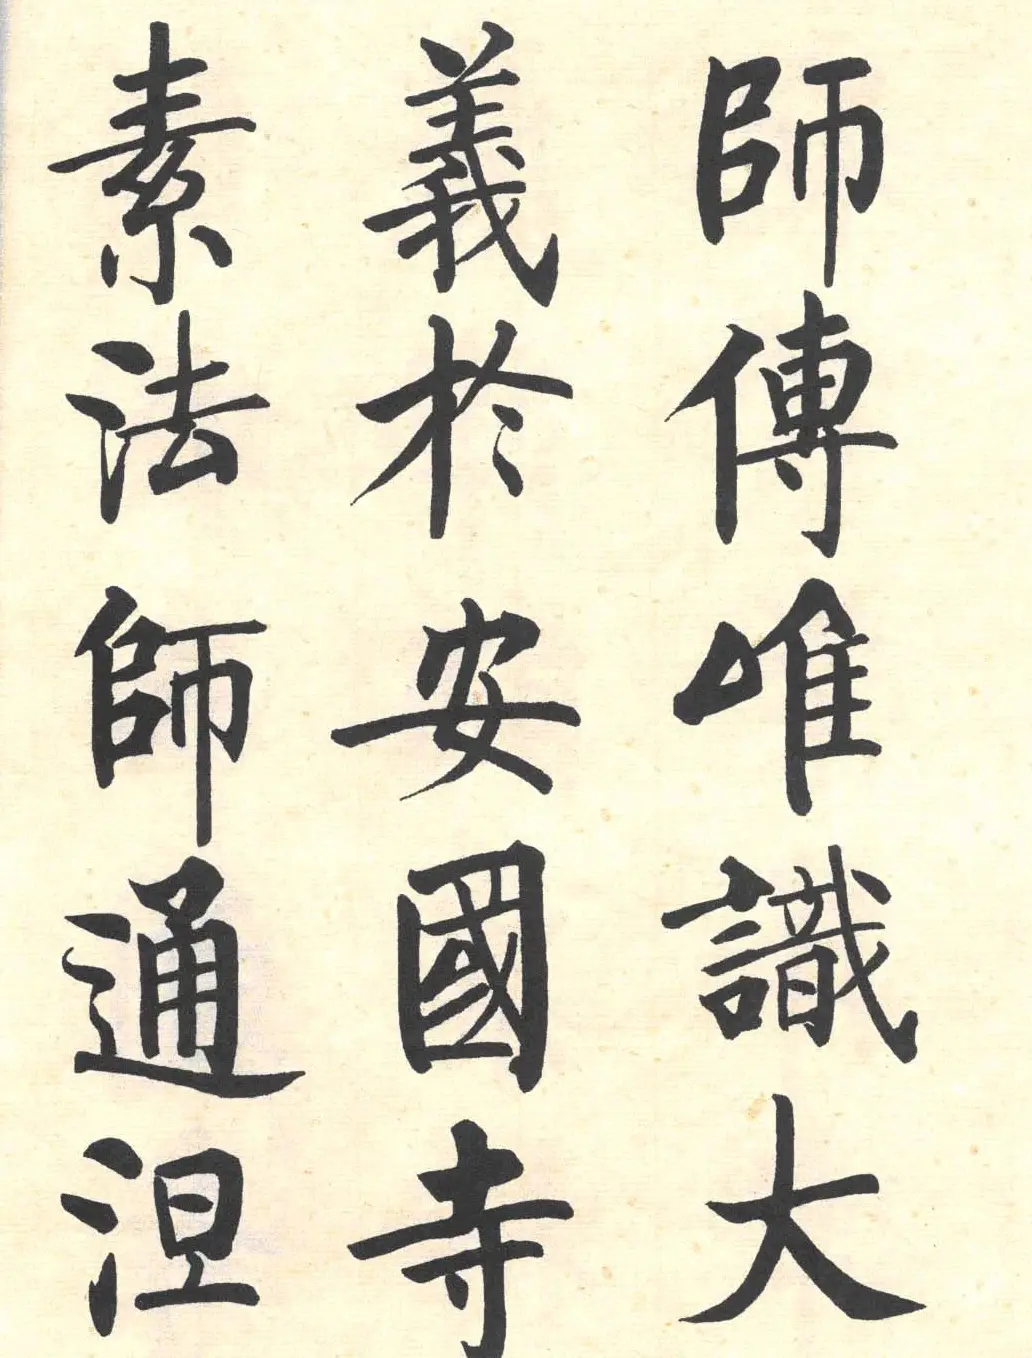 師傳唯識大
義於安國寺
素法師通涅